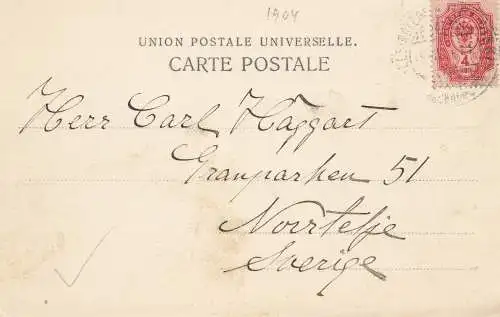 1904
UNION POSTALE UNIVERSELLE.
CARTE POSTALE
4
Herr Carl Häggart
Granparken 51
Norrtelje
Sverige